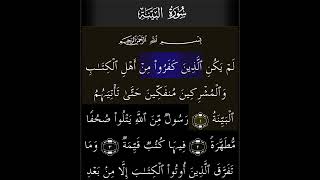 سُورَةُ البَيِّنَةِ
بِسْمِ اللَّهِ الرَّحْمَٰنِ الرَّحِيمِ
لَمْ يَكُنِ ٱلَّذِينَ كَفَرُوا۟ مِنْ أَهْلِ ٱلْكِتَـٰبِ
وَٱلْمُشْرِكِينَ مُنفَكِّينَ حَتَّىٰ تَأْتِيَهُمُ
ٱلْبَيِّنَةُ ١ رَسُولٌ مِّنَ ٱللَّهِ يَتْلُوا۟ صُحُفًا
مُّطَهَّرَةً ٢ فِيهَا كُتُبٌ قَيِّمَةٌ ٣ وَمَا
تَفَرَّقَ ٱلَّذِينَ أُوتُوا۟ ٱلْكِتَـٰبَ إِلَّا مِنۢ بَعْدِ